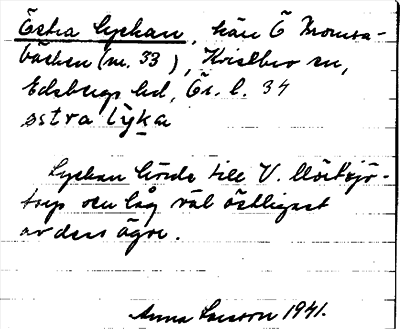 Östra Lyckan, kärr Ö
bäcken (nr. 33), Kvistbro sn,
Edsbergs hd, Ör. l. 34
östra lyka
Lyckan hörde till V. Mörtsjö-
torp och låg väl östligast
av dess ägor.
Anna Larsson 1941.